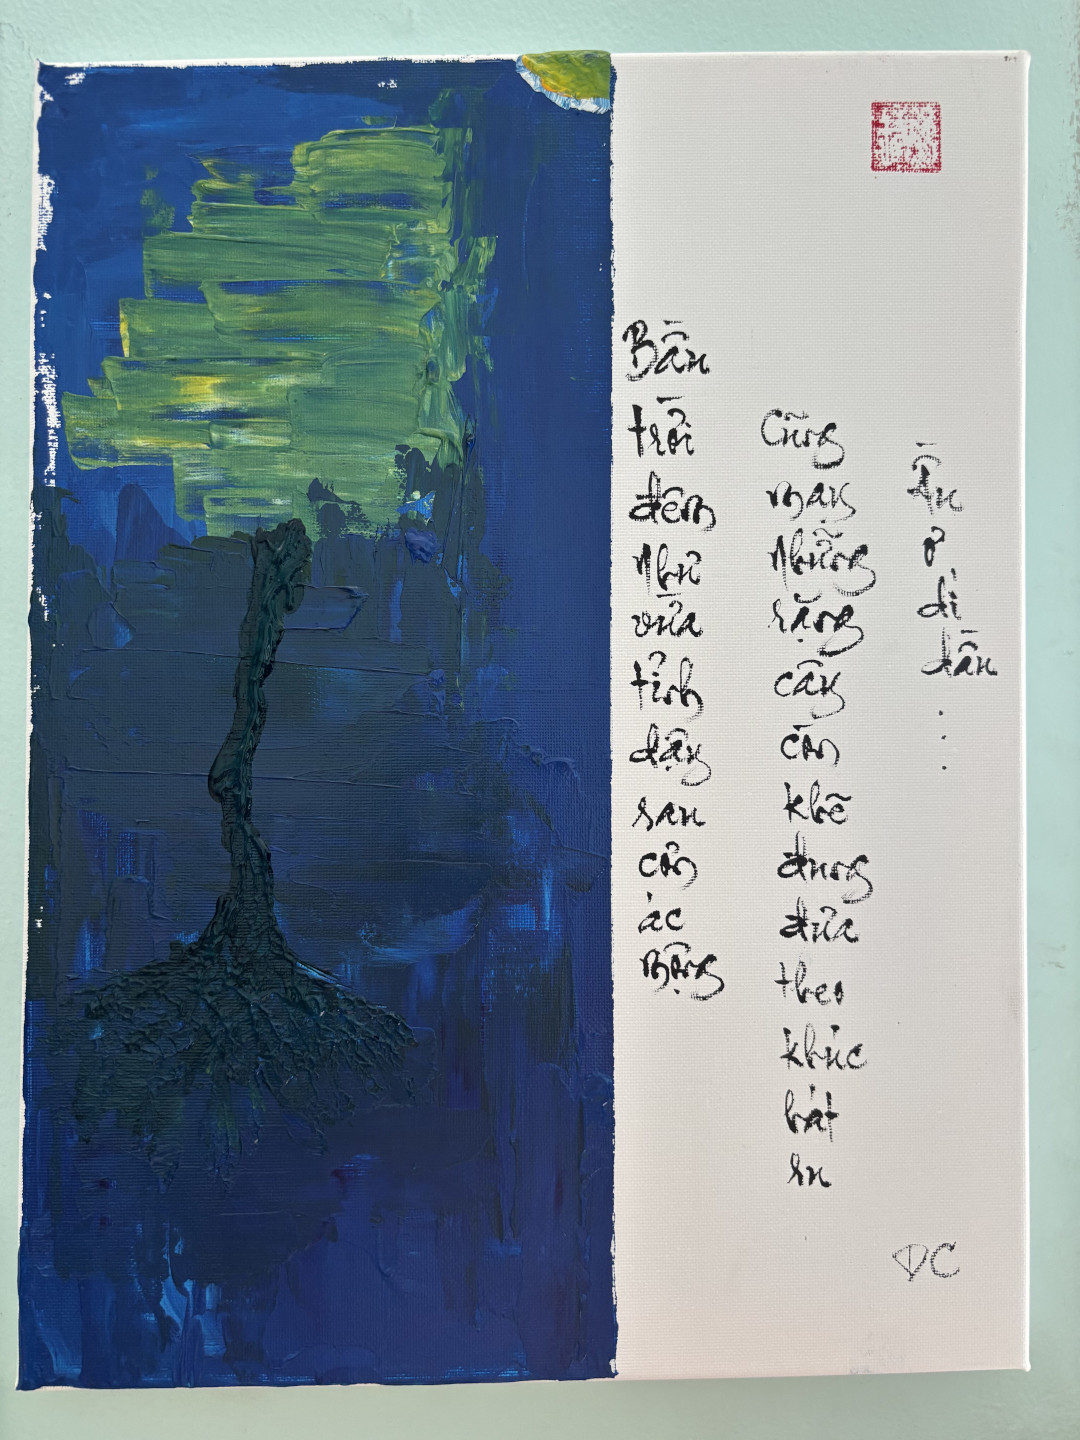 Bầu trời đêm như vừa tỉnh dậy sau cơn ác mộng
Cũng may những rặng cây còn khẽ đung đưa theo khúc hát ru
Ầu ơ dí dầu . . .
DC